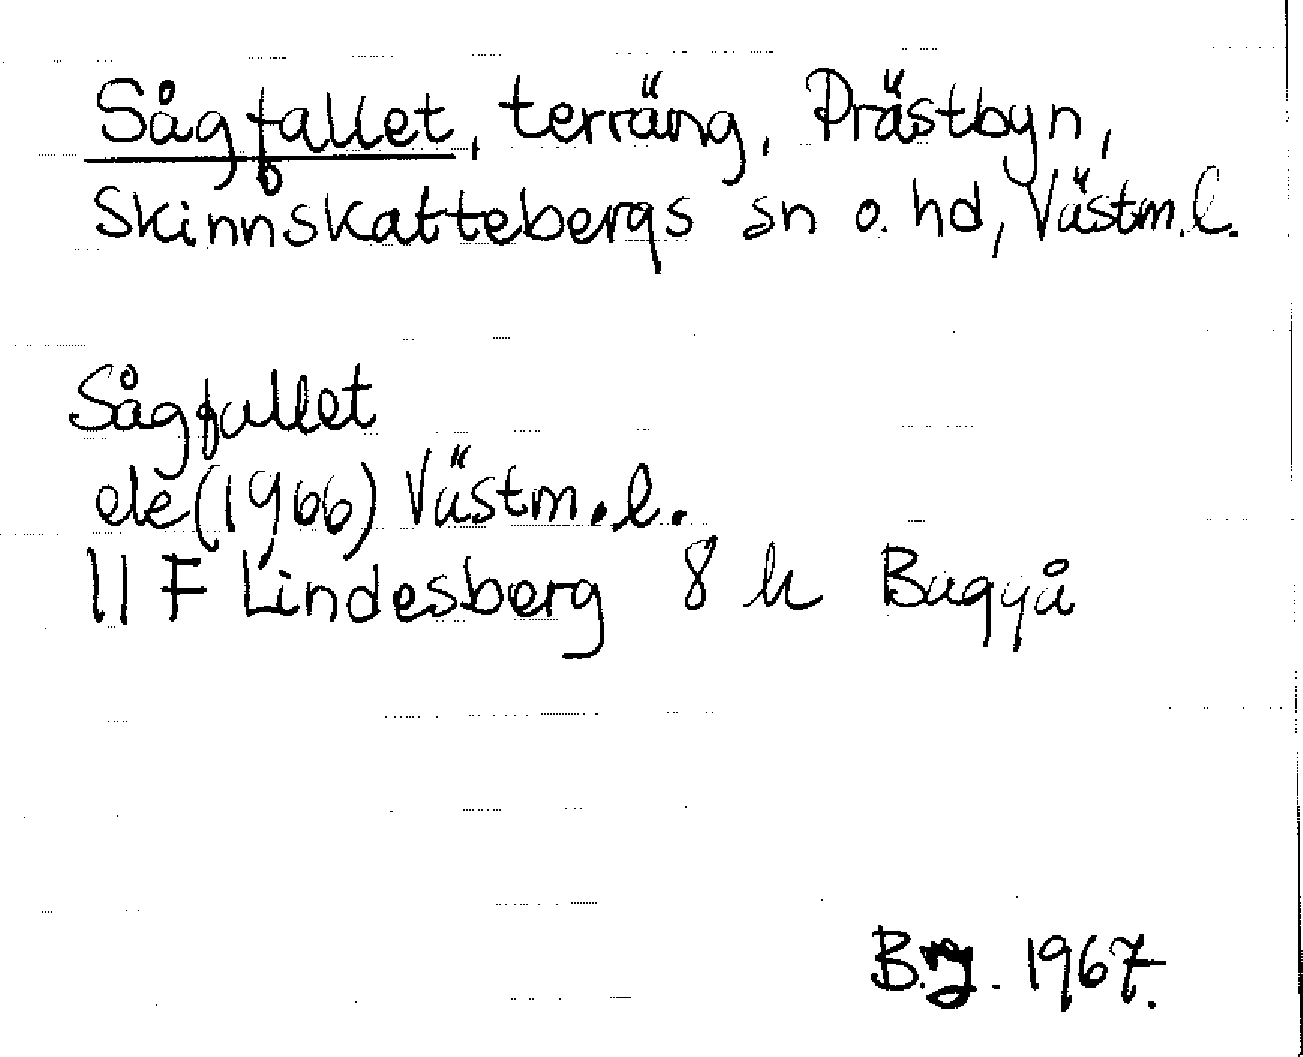 Sågfallet, terräng, Prästbyn,
Skinnskattebergs sn o. hd, Västm.l.
Sågfallet
ek (1966) Västm.l.
11 F Lindesberg 8 h Baggå
1967.